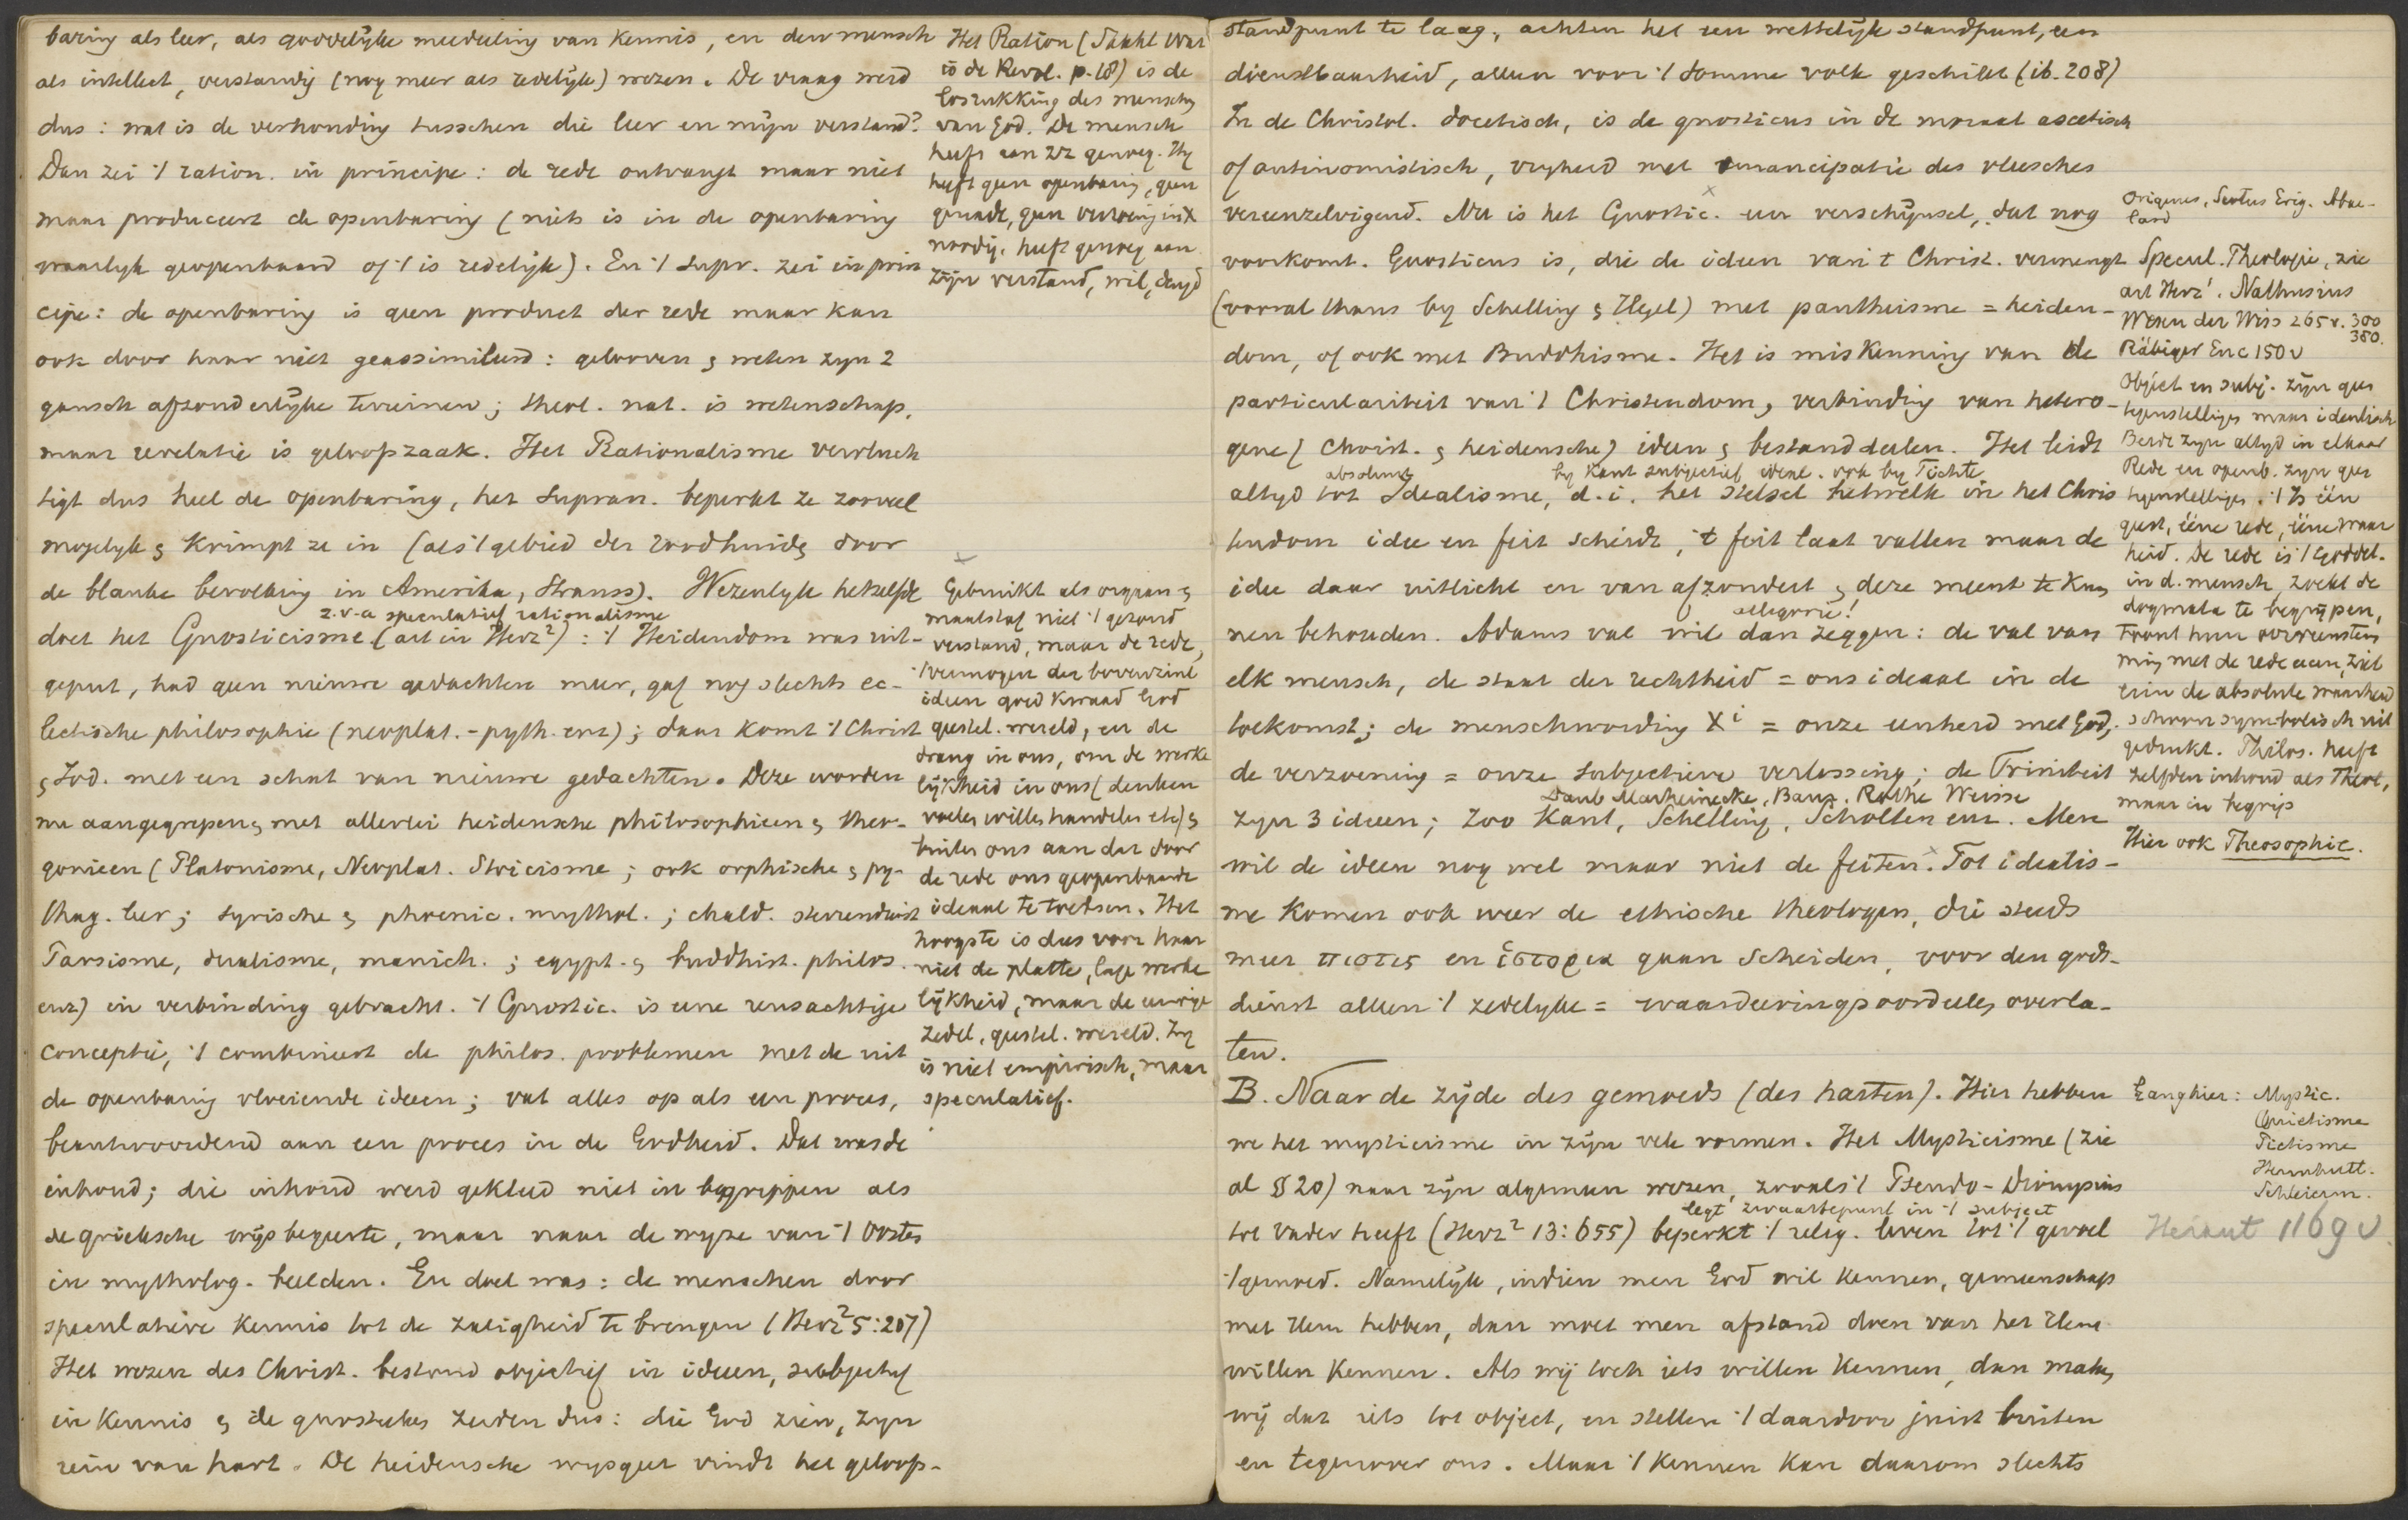 baring als leer, als goddelijke mededeeling van kennis, en den mensch
als intellect, verstandig (nog meer als redelijk) wezen. De vraag werd
dus: wat is de verhouding tusschen die leer en mijn verstand?
Dan zei 't ration. in principe: de rede ontvangt maar niet
maar produceert de openbaring (niets is in de openbaring
waarlijk geopenbaard of 't is redelijk). En 't supr. zei in prin
cipe: de openbaring is geen product der rede maar kan
ook door haar niet geassimileerd: gelooven & weten zyn 2
gansch afzonderlyke terreinen; theol. nat. is wetenschap,
maar revelatie is geloofszaak. Het Rationalisme vervluch
tigt dus heel de openbaring, het supran. beperkt ze zooveel
mogelyk & krimpt ze in (als 't gebied der roodhuids door
de blanke bevolking in Amerika, Strauss). Wezenlyk hetzelfde
z.v.a speculatief rationalisme
doet het Gnosticisme (art in Herz²): 't Heidendom was uit-
geput, had geen nieuwe gedachten meer, gaf nog slechts ec-
lectische philosophie (neoplat.-pyth. enz); daar komt 't Christ
& Jod. met een schat van nieuwe gedachten. Deze worden
nu aangegrepen & met allerlei heidensche philosophieen & theo-
gonieen (Platonisme, Neoplat. Stoicisme; ook orphische & py-
thag. leer; syrische & phoenic. mythol.; chald. sterrendienst
Parsisme, dualisme, manich.; egypt. & buddhist. philos.
enz) in verbinding gebracht. 't Gnostic. is eene reusachtige
conceptie, 't combineert de philos. problemen met de uit
de openbaring vloeiende ideeen; vat alles op als een proces,
beantwoordend aan een proces in de Godheid. Dat was de
inhoud; die inhoud werd gekleed niet in begrippen als
de grieksche wijsbegeerte, maar naar de wyze van 't Oosten
in mytholog. beelden. En doel was: de menschen door
speculatieve kennis tot de zaligheid te brengen (Herz² 5:207)
Het wezen des Christ. bestond objectief in ideeen, subjectief
in kennis & de gnostieken zeiden dus: die God zien, zyn
rein van hart. De heidensche wysgeer vindt het geloofs-
Het Ration (Stahl Was
is de Revol. p. 18) is de
losrukking des menschen
van God. De mensch
heeft aan zz genoeg. Hy
heeft geen openbaring, geen
genade, geen verzoening in X
noodig. heeft genoeg aan
zijn verstand, wil, deugd
x
Gebruikt als orgaan &
maatstaf niet 't gezond
verstand, maar de rede,
't vermogen der bovenzinl
ideeen goed kwaad God
geestel. wereld, en de
drang in ons, om de werke
lijkheid in ons (denken
voelen willen handelen etc) &
buiten ons aan dat door
de rede ons geopenbaarde
ideaal te toetsen. Het
hoogste is dus voor haar
niet de platte, lage werke
lijkheid, maar de eeuwige
zedel, geestel. wereld. Zy
is niet empirisch, maar
speculatief.
standpunt te laag, achten het een wettelijk standpunt, een
dienstbaarheid, alleen voor 't domme volk geschikt (ib. 208)
In de Christol. docetisch, is de gnosticus in de moraal ascetisch
of antinomistisch, vryheid met emancipatie des vleesches
vereenzelvigend. Nu is het Gnostic. een verschijnsel, dat nog
voorkomt. Gnosticus is, die de ideen van 't Christ. vermengt
(vooral thans by Schelling & Hegel) met pantheisme = heiden-
dom, of ook met Buddhisme. Het is miskenning van de
particulariteit van 't Christendom, verbinding van hetero-
gene (Christ. & heidensche) ideen & bestanddeelen. Het leidt
absoluut by Kant subjectief ideal. ook by Fichte
altyd tot Idealisme, d.i. het stelsel hetwelk in het Chris
tendom idee en feit scheidt, 't feit laat vallen maar de
idee daar uitlicht en van afzondert & deze meent te kun
allegorie!
nen behouden. Adams val wil dan zeggen: de val van
elk mensch, de staat der rechtheid = ons ideaal in de
toekomst; de menschwording Xi = onze eenheid met God;
de verzoening = onze subjectieve verlossing; de Triniteit
Daub Marheinecke, Baur. Rothe Weisse
zyn 3 ideeen; zoo Kant, Schelling, Scholten enz. Men
wil de ideen nog wel maar niet de feiten. Tot idealis-
me komen ook weer de ethische theologen, die steeds
meer πιστις en ἱστορια gaan scheiden, voor den gods-
dienst alleen 't zedelyke = waardeeringsoordeelen overla-
ten.
B. Naar de zijde des gemoeds (des harten). Hier hebben
we het mysticisme in zijn vele vormen. Het Mysticisme (zie
al § 20) naar zijn algemeen wezen, zooals 't Pseudo-Dionysius
legt zwaartepunt in 't subject
tot vader heeft (Herz² 13:655) beperkt 't relig. leven tot 't gevoel
't gemoed. Namelijk, indien men God wil kennen, gemeenschap
met Hem hebben, dan moet men afstand doen van het Hem
willen kennen. Als wij toch iets willen kennen, dan maken
wij dat iets tot object, en stellen 't daardoor juist buiten
en tegenover ons. Maar 't kennen kan daarom slechts
Origenes, Scotus Erig. Abae-
lard
Specul. Theologie, zie
art Herz¹. Nathusius
Wesen der Wiss 265 v. 300
380.
Räbiger Enc 150 v
Object en subj. zijn geen
tegenstellingen maar identisch
Beide zyn altyd in elkaar
Rede en openb. zyn geen
tegenstellingen. 't Is één
geest, ééne rede, ééne waar
heid. De rede is 't Goddel.
in d. mensch, zoekt de
dogmata te begrijpen,
toont hun overeenstem
ming met de rede aan, ziet
erin de absolute waarheid
schoon symbolisch uit
gedrukt. Philos. heeft
zelfden inhoud als Theol,
maar in begrip
Hier ook Theosophie.
Gang hier: Mystic.
Quietisme
Pietisme
Herrnhutt.
Schleierm.
Heraut 1169 v